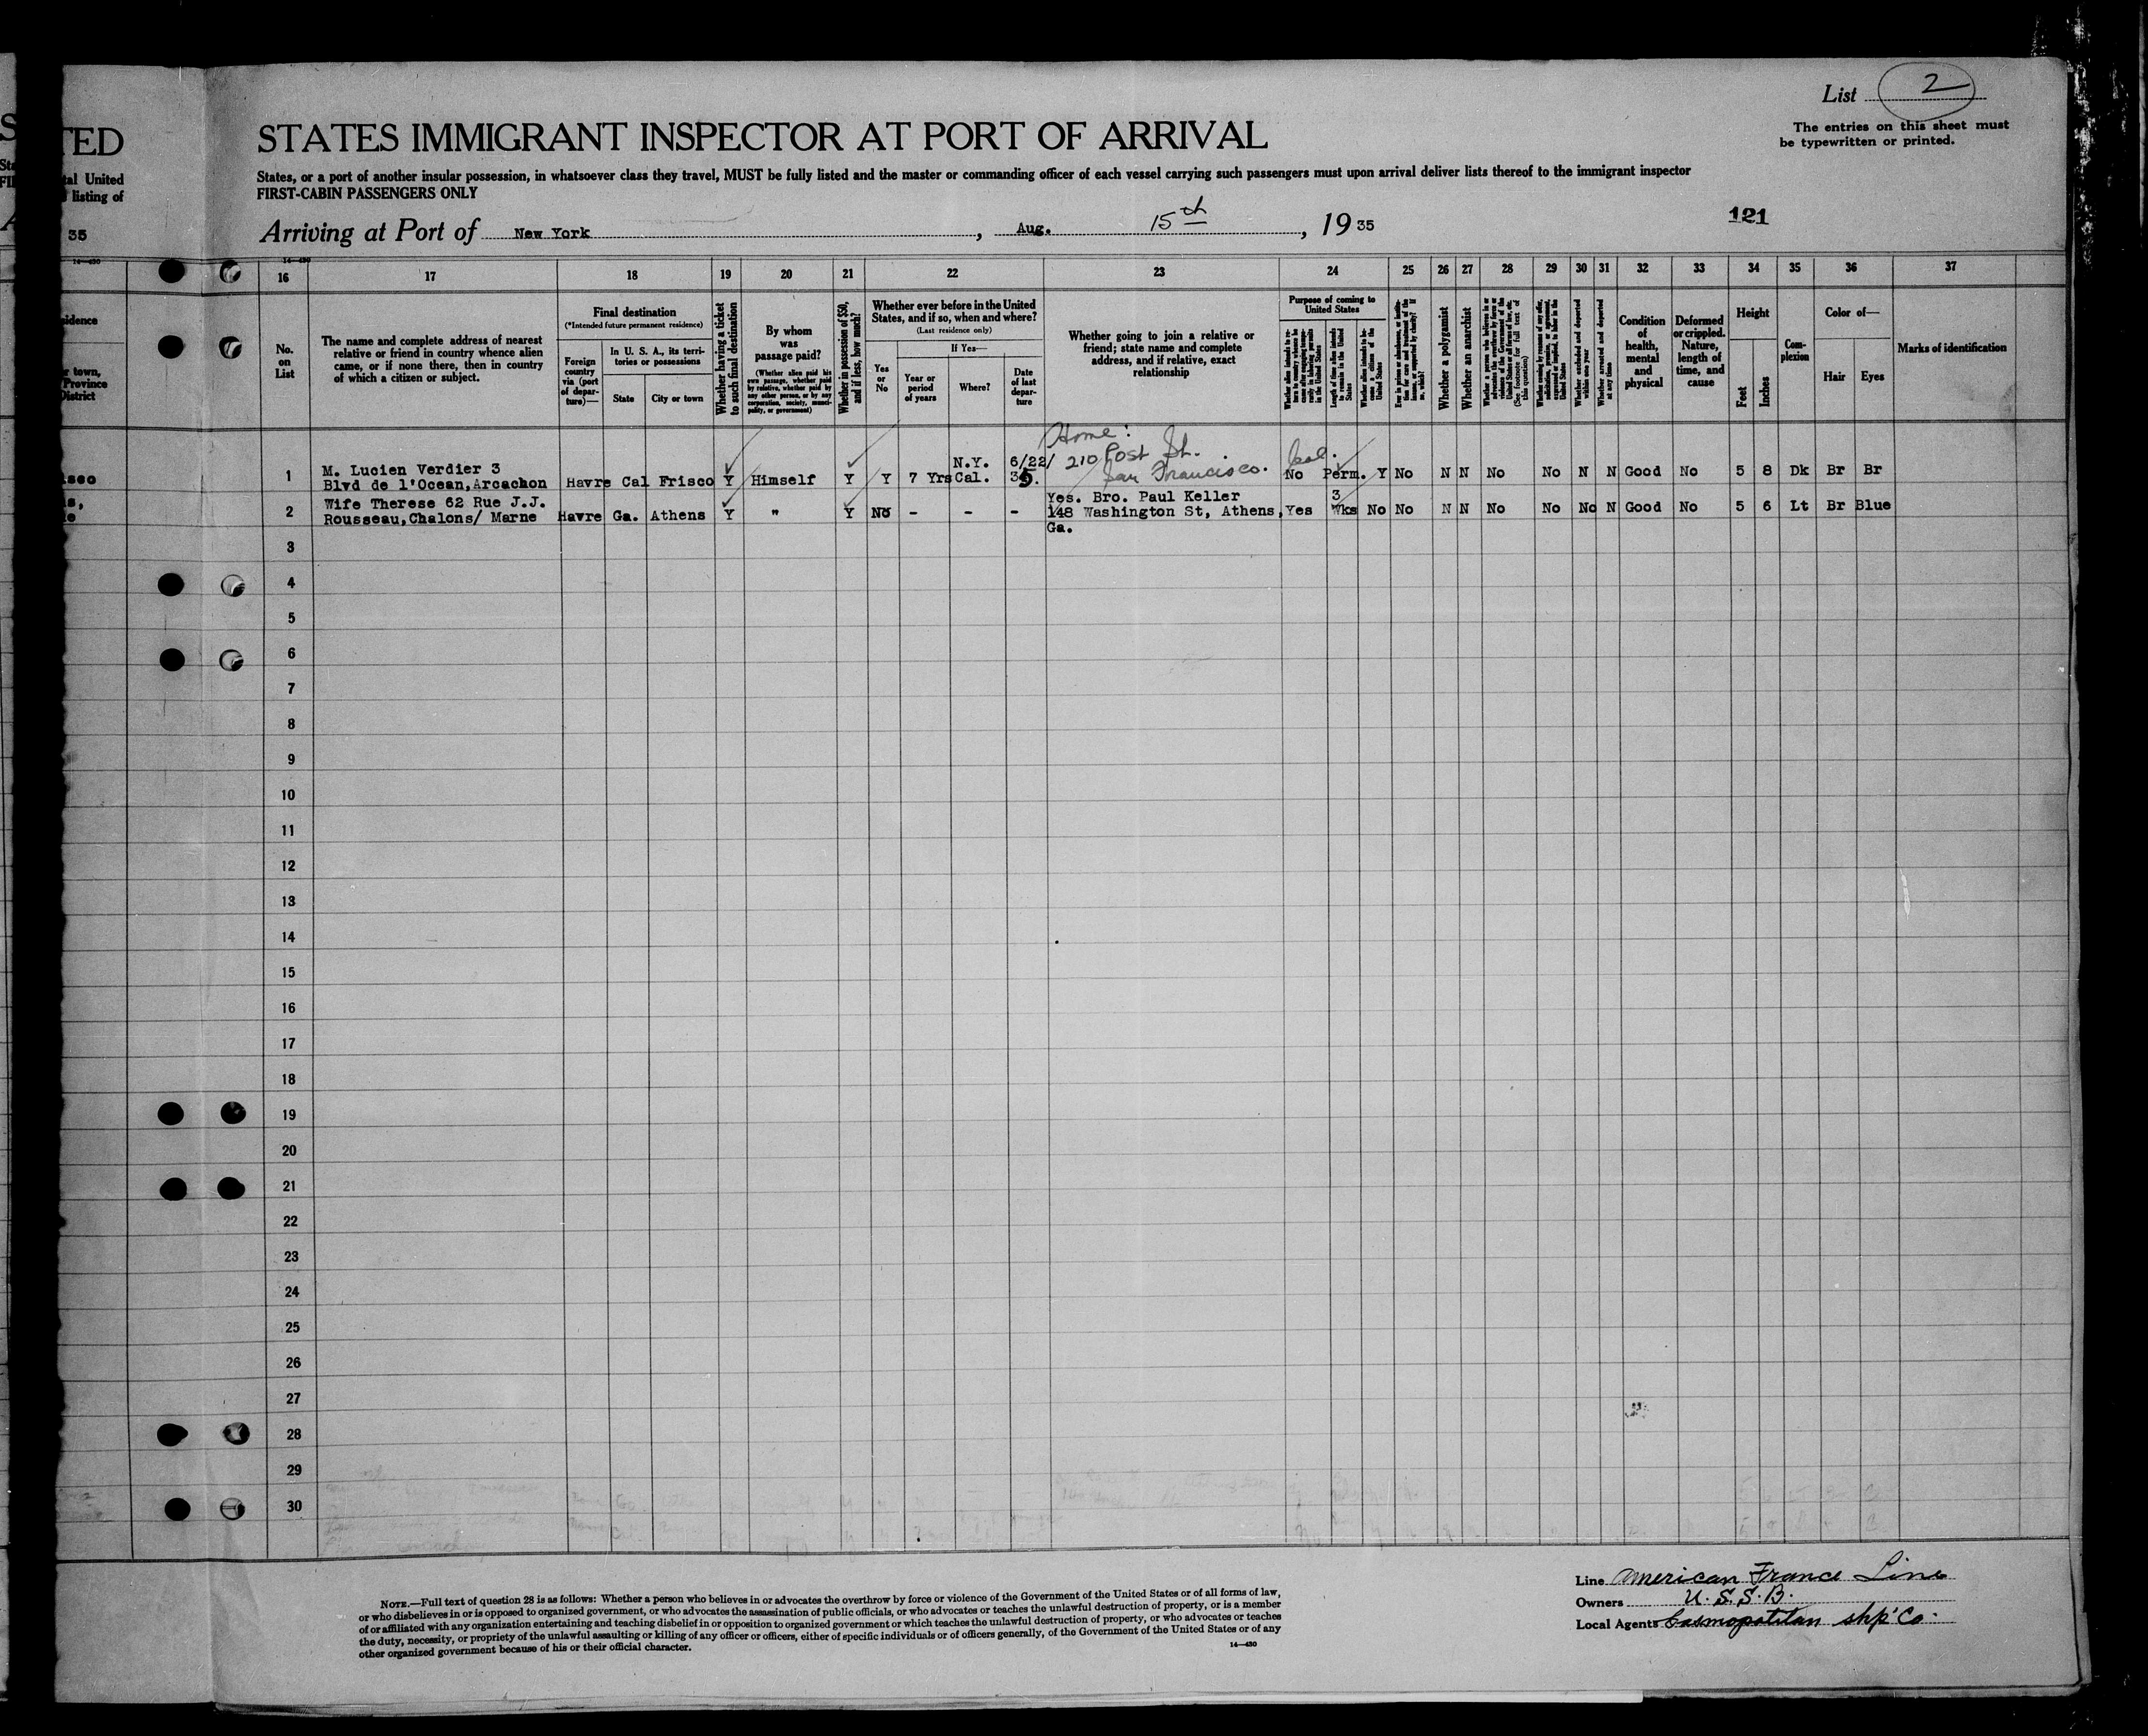 List 2
The entries on this sheet must
be typewritten or printed.
TED
STATES IMMIGRANT INSPECTOR AT PORT OF ARRIVAL
tal United
listing of
States, or a port of another insular possession, in whatsoever class they travel, MUST be fully listed and the master or commanding officer of each vessel carrying such passengers must upon arrival deliver lists thereof to the immigrant inspector
FIRST-CABIN PASSENGERS ONLY
35
Arriving at Port of New York, Aug. 15th, 19 35
121
16 17 18 19 20 21 22 23 24 25 26 27 28 29 30 31 32 33 34 35 36 37
No.
on
List
The name and complete address of nearest
relative or friend in country whence alien
came, or if none there, then in country
of which a citizen or subject.
Final destination
(*Intended future permanent residence)
Foreign
country
via (port
of depar-
ture)—
In U. S. A., its terri-
tories or possessions
State
City or town
Whether having a ticket
to such final destination
By whom
was
passage paid?
(Whether alien paid his
own passage, whether paid
by relative, whether paid by
any other person, or by any
corporation, society, munici-
pality, or government)
Whether in possession of $50,
and if less, how much?
Whether ever before in the United
States, and if so, when and where?
(Last residence only)
Yes
or
No
If Yes—
Year or
period
of years
Where?
Date
of last
depar-
ture
Whether going to join a relative or
friend; state name and complete
address, and if relative, exact
relationship
Purpose of coming to
United States
Whether a polygamist
Whether an anarchist
Whether excluded and deported
within one year
Whether arrested and deported
at any time
Condition
of
health,
mental
and
physical
Deformed
or crippled.
Nature,
length of
time, and
cause
Height
Feet
Inches
Com-
plexion
Color of—
Hair
Eyes
Marks of identification
1 M. Lucien Verdier 3
Blvd de l'Ocean,Arcachon Havre Cal Frisco Y Himself Y Y 7 Yrs N.Y. Cal. 6/22/ 35. Home: 210 Post St. San Francisco. Cal. No Perm. Y No N N No No N N Good No 5 8 Dk Br Br
2 Wife Therese 62 Rue J.J.
Rousseau,Chalons/ Marne Havre Ga. Athens Y " Y No - - - Yes. Bro. Paul Keller
148 Washington St, Athens,
Ga. Yes 3 Wks No No N N No No No N Good No 5 6 Lt Br Blue
3
4
5
6
7
8
9
10
11
12
13
14
15
16
17
18
19
20
21
22
23
24
25
26
27
28
29
30
NOTE.—Full text of question 28 is as follows: Whether a person who believes in or advocates the overthrow by force or violence of the Government of the United States or of all forms of law,
or who disbelieves in or is opposed to organized government, or who advocates the assassination of public officials, or who advocates or teaches the unlawful destruction of property, or is a member
of or affiliated with any organization entertaining and teaching disbelief in or opposition to organized government or which teaches the unlawful destruction of property, or who advocates or teaches
the duty, necessity, or propriety of the unlawful assaulting or killing of any officer or officers, either of specific individuals or of officers generally, of the Government of the United States or of any
other organized government because of his or their official character.
14—430
Line American France Line
Owners U.S.S.B.
Local Agents Cosmopolitan shp'Co.